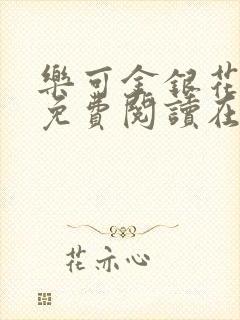 樂可金銀花
免費閱讀在
花亦心